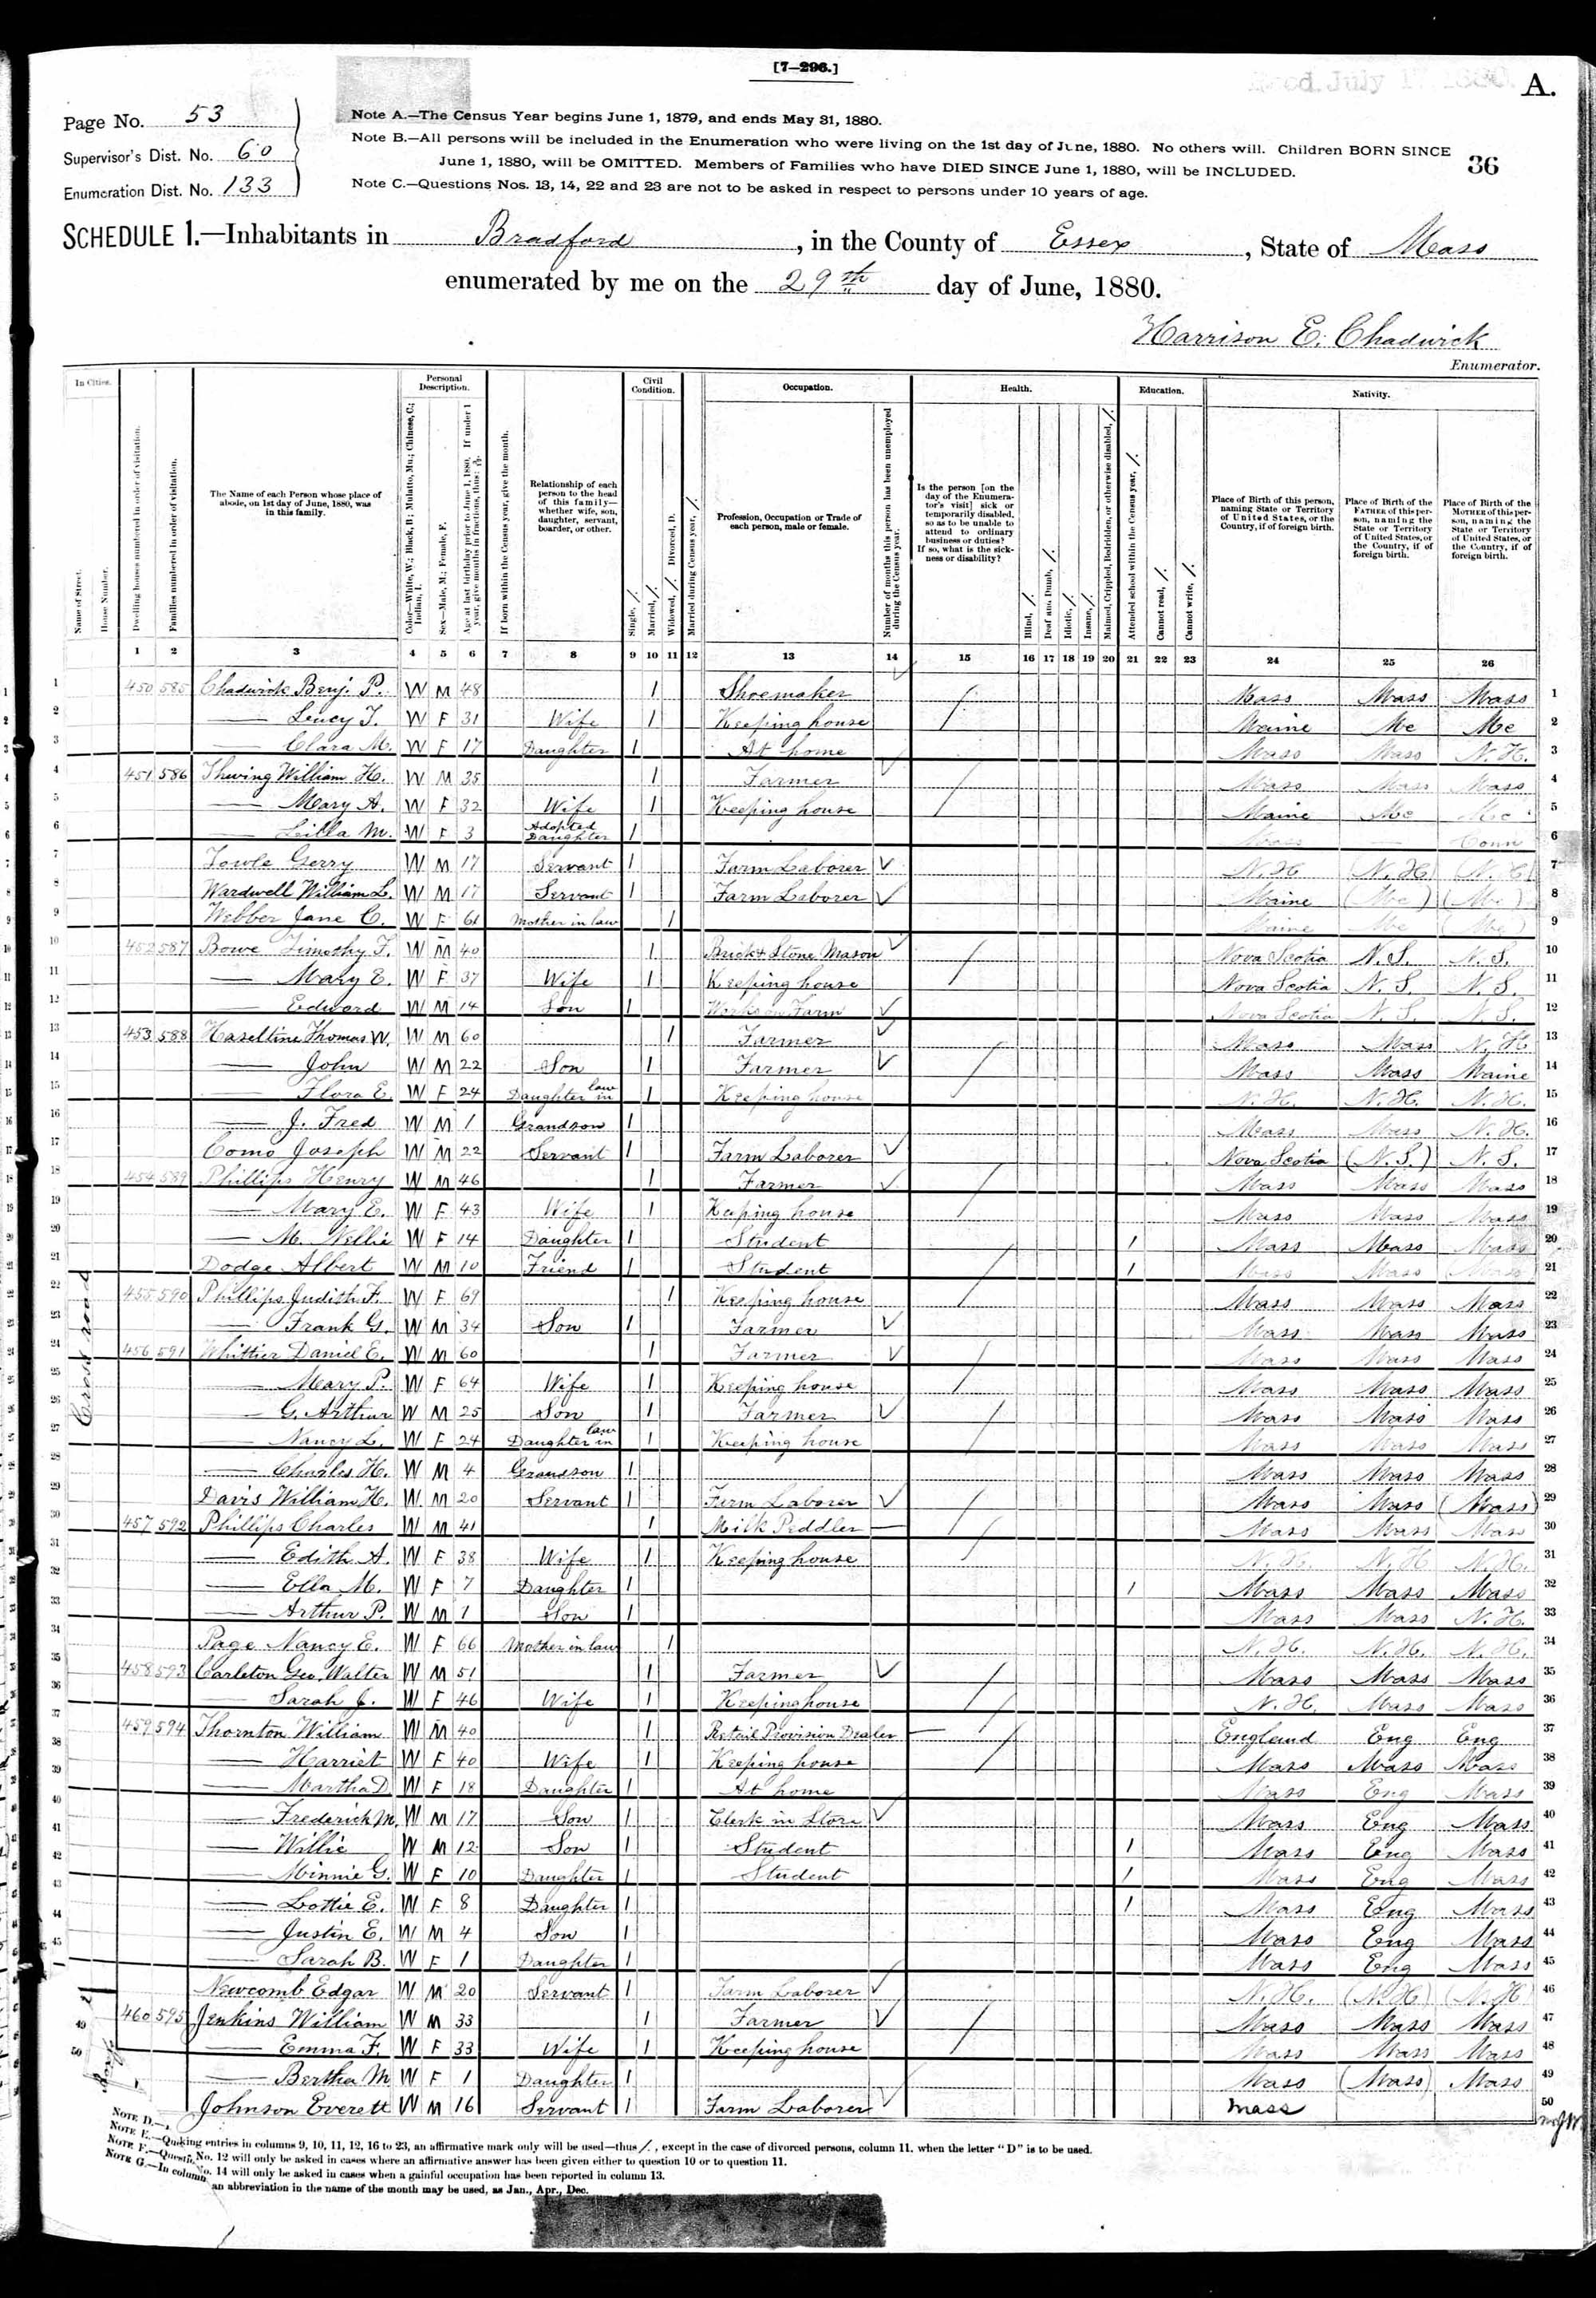 [7—296.]
Rec'd. July 17, 1880. A.
Page No. 53
Supervisor's Dist. No. 60
Enumeration Dist. No. 133
Note A.—The Census Year begins June 1, 1879, and ends May 31, 1880.
Note B.—All persons will be included in the Enumeration who were living on the 1st day of June, 1880. No others will. Children BORN SINCE
June 1, 1880, will be OMITTED. Members of Families who have DIED SINCE June 1, 1880, will be INCLUDED.
Note C.—Questions Nos. 13, 14, 22 and 23 are not to be asked in respect to persons under 10 years of age.
36
SCHEDULE 1.—Inhabitants in Bradford, in the County of Essex, State of Mass
enumerated by me on the 29th day of June, 1880.
Harrison E. Chadwick
Enumerator.
In Cities. Personal Description. Civil Condition. Occupation. Health. Education. Nativity.
Name of Street.
House Number.
Dwelling houses numbered in order of visitation.
Families numbered in order of visitation.
The Name of each Person whose place of abode, on 1st day of June, 1880, was in this family.
Color—White, W.; Black, B.; Mulatto, Mu.; Chinese, C.; Indian, I.
Sex—Male, M.; Female, F.
Age at last birthday prior to June 1, 1880. If under 1 year, give months in fractions, thus: 3/12.
If born within the Census year, give the month.
Relationship of each person to the head of this family—whether wife, son, daughter, servant, boarder, or other.
Single, /.
Married, /.
Widowed, /. Divorced, D.
Married during Census year, /.
Profession, Occupation or Trade of each person, male or female.
Number of months this person has been unemployed during the Census year.
Is the person [on the day of the Enumerator's visit] sick or temporarily disabled, so as to be unable to attend to ordinary business or duties? If so, what is the sickness or disability?
Blind, /.
Deaf and Dumb, /.
Idiotic, /.
Insane, /.
Maimed, Crippled, Bedridden, or otherwise disabled, /.
Attended school within the Census year, /.
Cannot read, /.
Cannot write, /.
Place of Birth of this person, naming State or Territory of United States, or the Country, if of foreign birth.
Place of Birth of the FATHER of this person, naming the State or Territory of United States, or the Country, if of foreign birth.
Place of Birth of the MOTHER of this person, naming the State or Territory of United States, or the Country, if of foreign birth.
1 2 3 4 5 6 7 8 9 10 11 12 13 14 15 16 17 18 19 20 21 22 23 24 25 26
1 450 585 Chadwick Benj. P. W M 48 1 Shoemaker Mass Mass Mass 1
2 — Lucy T. W F 31 Wife 1 Keeping house Maine Me Me 2
3 — Clara M. W F 17 Daughter 1 At home Mass Mass N.H. 3
4 451 586 Thwing William H. W M 35 1 Farmer Mass Mass Mass 4
5 — Mary A. W F 32 Wife 1 Keeping house Maine Me Me 5
6 — Lilla M. W F 3 Adopted Daughter 1 Mass — Conn 6
7 Fowle Gerry W M 17 Servant 1 Farm Laborer ✓ N.H (N.H) (N.H) 7
8 Wardwell William L. W M 17 Servant 1 Farm Laborer ✓ Maine (Me) (Me) 8
9 Webber Jane C. W F 61 Mother in law 1 Maine Me (Me) 9
10 452 587 Bowe Timothy F. W M 40 1 Brick & Stone Mason ✓ Nova Scotia N.S. N.S. 10
11 — Mary E. W F 37 Wife 1 Keeping house Nova Scotia N.S. N.S. 11
12 — Edward W M 14 Son 1 Works on Farm ✓ Nova Scotia N.S. N.S. 12
13 453 588 Haseltine Thomas W. W M 60 1 Farmer ✓ Mass Mass N.H. 13
14 — John W M 22 Son 1 Farmer ✓ Mass Mass Maine 14
15 — Flora E. W F 24 Daughter in law 1 Keeping house N.H. N.H. N.H. 15
16 — J. Fred W M 1 Grandson 1 Mass Mass N.H. 16
17 Como Joseph W M 22 Servant 1 Farm Laborer ✓ Nova Scotia (N.S.) N.S. 17
18 454 589 Phillips Henry W M 46 1 Farmer ✓ Mass Mass Mass 18
19 — Mary E. W F 43 Wife 1 Keeping house Mass Mass Mass 19
20 — M. Nellie W F 14 Daughter 1 Student 1 Mass Mass Mass 20
21 Dodge Albert W M 10 Friend 1 Student 1 Mass Mass (Mass) 21
Cross road
22 455 590 Phillips Judith F. W F 69 1 Keeping house Mass Mass Mass 22
23 — Frank G. W M 34 Son 1 Farmer ✓ Mass Mass Mass 23
24 456 591 Whittier Daniel E. W M 60 1 Farmer ✓ Mass Mass Mass 24
25 — Mary P. W F 64 Wife 1 Keeping house Mass Mass Mass 25
26 — G. Arthur W M 25 Son 1 Farmer ✓ Mass Mass Mass 26
27 — Nancy L. W F 24 Daughter in law 1 Keeping house Mass Mass Mass 27
28 — Charles H. W M 4 Grandson 1 Mass Mass Mass 28
29 Davis William H. W M 20 Servant 1 Farm Laborer ✓ Mass Mass (Mass) 29
30 457 592 Phillips Charles W M 41 1 Milk Peddler — Mass Mass Mass 30
31 — Edith A. W F 38 Wife 1 Keeping house N.H. N.H N.H. 31
32 — Ella M. W F 7 Daughter 1 1 Mass Mass Mass 32
33 — Arthur P. W M 1 Son 1 Mass Mass N.H. 33
34 Page Nancy E. W F 66 Mother in law 1 N.H. N.H. N.H. 34
35 458 593 Carleton Geo. Walter W M 51 1 Farmer ✓ Mass Mass Mass 35
36 — Sarah J. W F 46 Wife 1 Keeping house N.H. Mass Mass 36
37 459 594 Thornton William W M 40 1 Retail Provision Dealer — England Eng Eng 37
38 — Harriet W F 40 Wife 1 Keeping house Mass Mass Mass 38
39 — Martha D. W F 18 Daughter 1 At home Mass Eng Mass 39
40 — Frederick M. W M 17 Son 1 Clerk in Store ✓ Mass Eng Mass 40
41 — Willie W M 12 Son 1 Student 1 Mass Eng Mass 41
42 — Minnie G. W F 10 Daughter 1 Student 1 Mass Eng Mass 42
43 — Lottie E. W F 8 Daughter 1 1 Mass Eng Mass 43
44 — Justin E. W M 4 Son 1 Mass Eng Mass 44
45 — Sarah B. W F 1 Daughter 1 Mass Eng Mass 45
Newcomb Edgar W M 20 Servant 1 Farm Laborer ✓ N.H. (N.H) (N.H) 46
460 595 Jenkins William W M 33 1 Farmer ✓ Mass Mass Mass 47
— Emma F. W F 33 Wife 1 Keeping house Mass Mass Mass 48
49 — Bertha M W F 1 Daughter 1 Mass (Mass) Mass 49
50 Johnson Everett W M 16 Servant 1 Farm Laborer ✓ Mass 50
NOTE D.—
NOTE E.—
entries in columns 9, 10, 11, 12, 16 to 23, an affirmative mark only will be used—thus /. , except in the case of divorced persons, column 11. when the letter "D" is to be used.
NOTE F.—Question No. 12 will only be asked in cases where an affirmative answer has been given either to question 10 or to question 11.
No. 14 will only be asked in cases when a gainful occupation has been reported in column 13.
NOTE G.—In column an abbreviation in the name of the month may be used, as Jan., Apr., Dec.